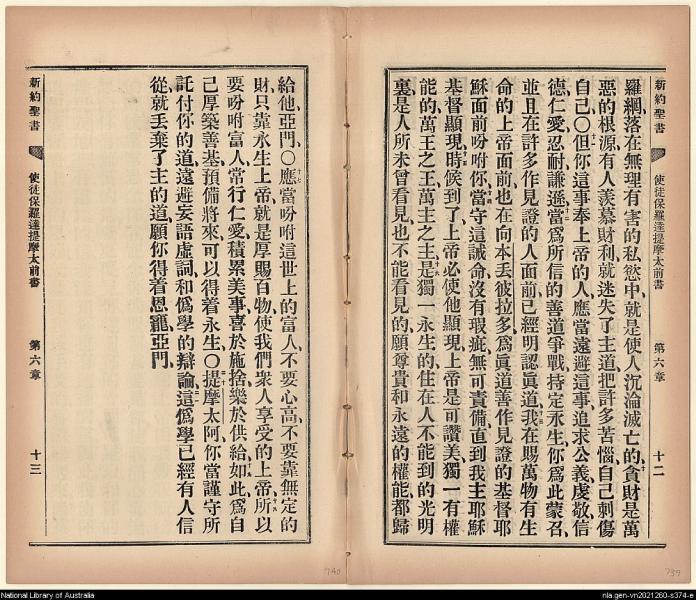 新約聖書 使徒保羅達提摩太前書 第六章 十二
羅網、落在無理有害的私慾中、就是使人沉淪滅亡的、十貪財是萬
惡的根源、有人羨慕財利、就迷失了主道、把許多苦惱、自己刺傷
自己〇但你這事奉上帝的人、應當遠避這事、追求公義、虔敬、信
德、仁愛、忍耐、謙遜、十二當爲所信的善道爭戰、持定永生、你爲此蒙召、
並且在許多作見證的人面前、已經明認眞道、我在賜萬物有生
命的上帝面前、也在向本丟彼拉多爲眞道善作見證的基督耶
穌面前吩咐你、當守這誡命、沒有瑕疵、無可責備、直到我主耶穌
基督顯現、時候到了、上帝必使他顯現、上帝是可讚美、獨一有權
能的、萬王之王、萬主之主、是獨一永生的、住在人不能到的光明
裏、是人所未曾看見、也不能看見的、願尊貴和永遠的權能、都歸
給他、亞門、〇十七應當吩咐這世上的富人、不要心高、不要靠無定的
財、只靠永生上帝、就是厚賜百物、使我們衆人享受的上帝、所以
要吩咐富人、常行仁愛、積累美事、喜於施捨、樂於供給、如此、爲自
己厚築善基、預備將來、可以得着永生〇提摩太阿、你當謹守所
託付你的道、遠避妄語虛詞、和僞學的辯論、這僞學已經有人信
從、就丟棄了主的道、願你得着恩寵、亞門、
新約聖書 使徒保羅達提摩太前書 第六章 十三
740
739
National Library of Australia
nla.gen-vn2021260-s374-e